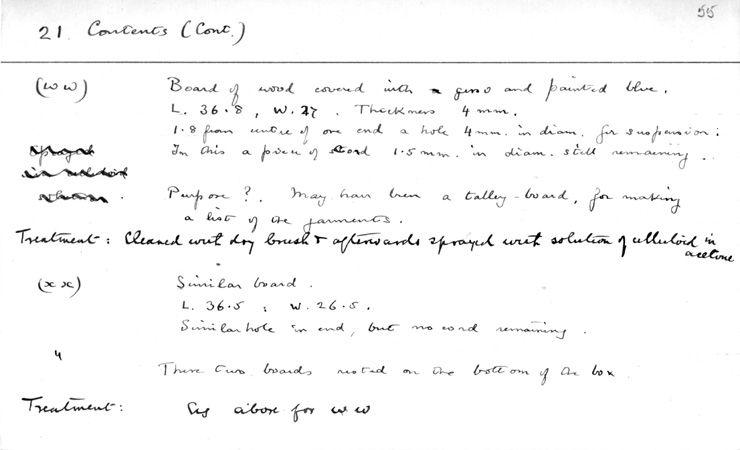 55
21 Contents (Cont.)
(ww) Board of wood covered with gesso and painted blue.
L. 36.8, W. 27. Thickness 4 mm.
1.8 from centre of one end a hole 4 mm. in diam. for suspension:
In this a piece of cord 1.5 mm. in diam. still remaining.
Purpose?. May have been a talley-board, for making
a list of the garments.
Treatment: Cleaned with dry brush & afterwards sprayed with solution of celluloid in
acetone
(xx) Similar board.
L. 36.5; W. 26.5.
Similar hole in end, but no cord remaining.
These two boards rested on the bottom of the box
Treatment: As above for ww